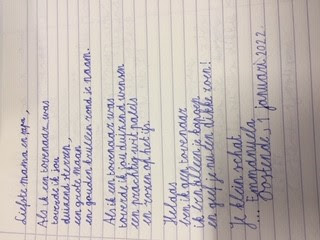 Liefste mama en papa,
Als ik een tovenaar was
toverde ik jou
duizend sterren,
een grote maan
en gouden krullen rond je naam.
Als ik een tovenaar was
toverde ik jou duizend wensen
een prachtig wit paleis
en rozen op het ijs.
Helaas
ben ik geen tovenaar
ik ben alleen je kapoen
en geef je nu een dikke zoen!
Je klein schat
... Emmanuella
Oostende, 1 januari 2022.